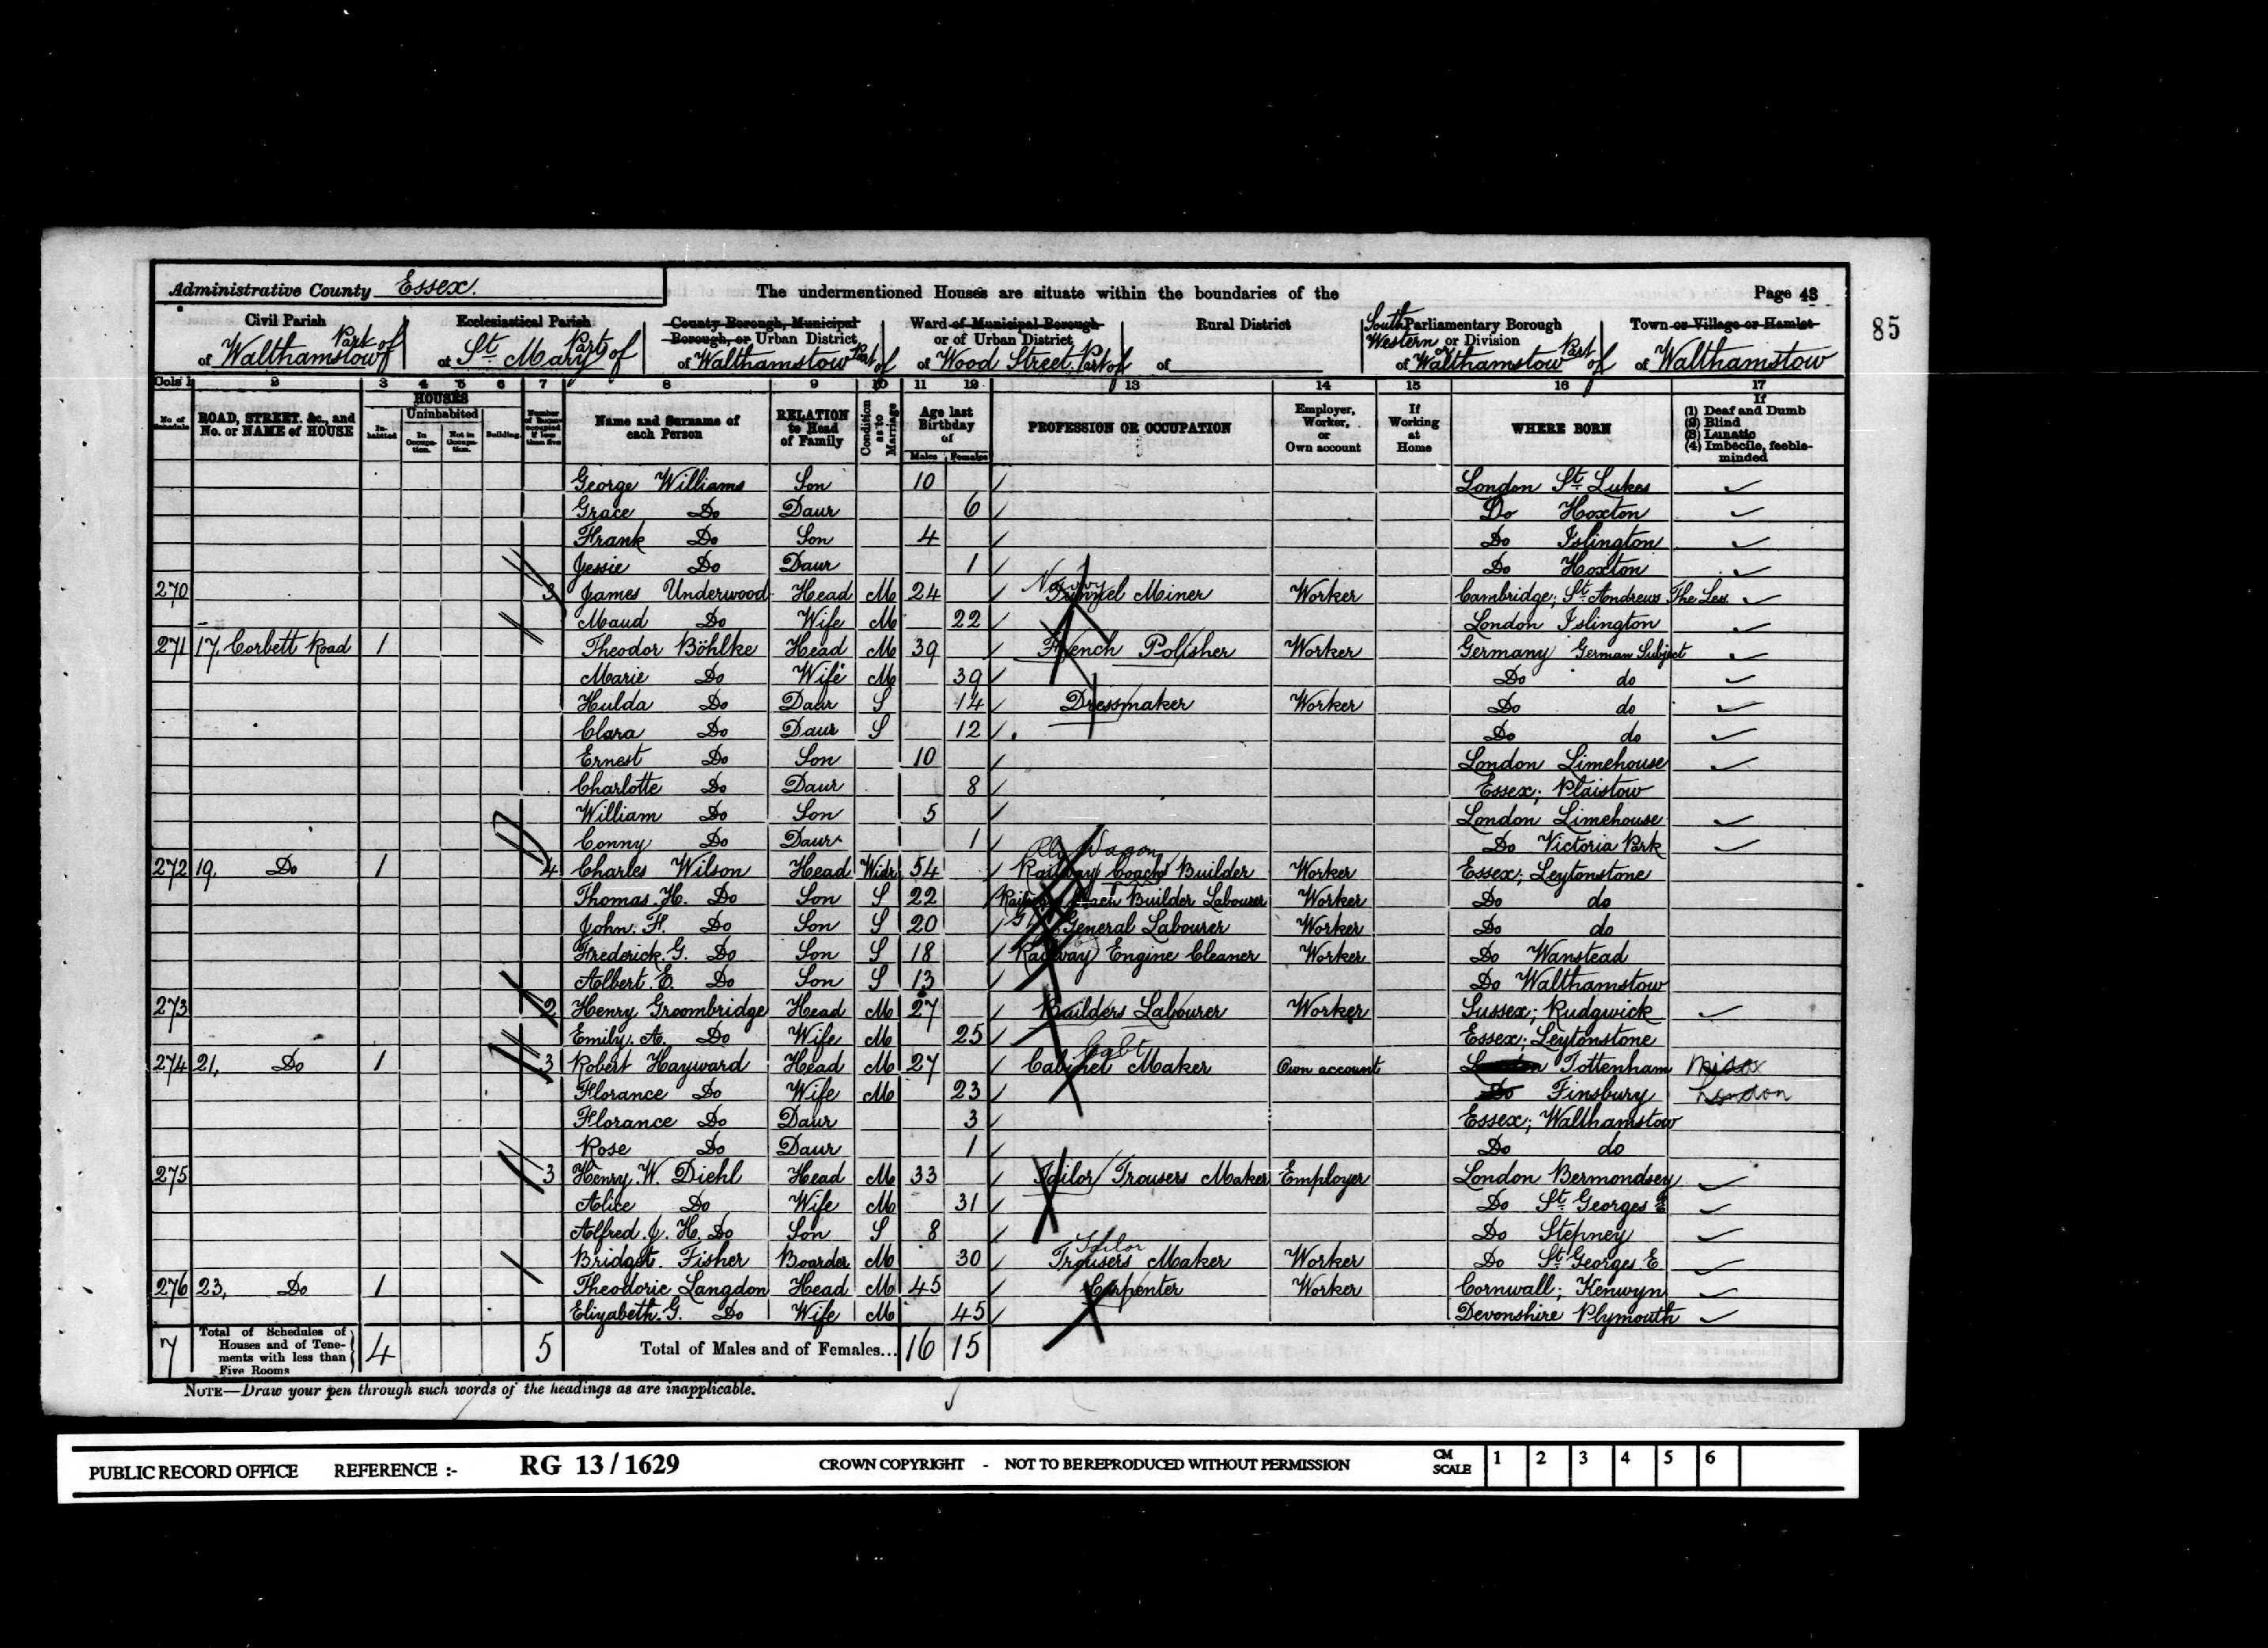 Administrative County Essex.
The undermentioned Houses are situate within the boundaries of the
Page 43
85
Civil Parish of Walthamstow Part of
Ecclesiastical Parish of St. Mary Part of
County Borough, Municipal Borough, or Urban District of Walthamstow Part of
Ward of Municipal Borough or of Urban District of Wood Street Part of
Rural District of
South Western Parliamentary Borough or Division of Walthamstow Part of
Town or Village or Hamlet of Walthamstow
Cols 1 2 3 4 5 6 7 8 9 10 11 12 13 14 15 16 17
No of Schedule
ROAD, STREET, &c., and No. or NAME of HOUSE
HOUSES
Inhabited
Uninhabited
In Occupation.
Not in Occupation.
Building.
Number of Rooms occupied if less than five
Name and Surname of each Person
RELATION to Head of Family
Condition as to Marriage
Age last Birthday of
Males Females
PROFESSION OR OCCUPATION
Employer, Worker, or Own account
If Working at Home
WHERE BORN
If (1) Deaf and Dumb (2) Blind (3) Lunatic (4) Imbecile, feeble-minded
George Williams Son 10 London St. Lukes
Grace Do Daur 6 Do Hoxton
Frank Do Son 4 Do Islington
Jessie Do Daur 1 Do Hoxton
270 3 James Underwood Head M 24 Navvy Tunnel Miner Worker Cambridge; St. Andrews The Less
Maud Do Wife M 22 London Islington
271 17, Corbett Road 1 Theodor Böhlke Head M 39 French Polisher Worker Germany German Subject
Marie Do Wife M 39 Do do
Hulda Do Daur S 14 Dressmaker Worker Do do
Clara Do Daur S 12 Do do
Ernest Do Son 10 London Limehouse
Charlotte Do Daur 8 Essex; Plaistow
William Do Son 5 London Limehouse
Conny Do Daur 1 Do Victoria Park
272 19, Do 1 4 Charles Wilson Head Widr 54 Rly Wagon Railway Coach Builder Worker Essex; Leytonstone
Thomas. H. Do Son S 22 Railway Coach Builder Labourer Worker Do do
John. F. Do Son S 20 General Labourer Worker Do do
Frederick. G. Do Son S 18 Railway Engine Cleaner Worker Do Wanstead
Albert. E. Do Son S 13 Do Walthamstow
273 2 Henry Groombridge Head M 27 Builders Labourer Worker Sussex; Rudgwick
Emily. A. Do Wife M 25 Essex; Leytonstone
274 21, Do 1 3 Robert Hayward Head M 27 Cabt Cabinet Maker Own account London Tottenham Midsx
Florance Do Wife M 23 Do Finsbury London
Florance Do Daur 3 Essex; Walthamstow
Rose Do Daur 1 Do do
275 3 Henry. W. Diehl Head M 33 Tailor Trousers Maker Employer London Bermondsey
Alice Do Wife M 31 Do St. Georges E
Alfred. J. H. Do Son S 8 Do Stepney
Bridget. Fisher Boarder M 30 Tailor Trousers Maker Worker Do St. Georges. E
276 23, Do 1 Theodoric Langdon Head M 45 Carpenter Worker Cornwall; Kenwyn
Elizabeth. G. Do Wife M 45 Devonshire Plymouth
7 Total of Schedules of Houses and of Tenements with less than Five Rooms 4 5 Total of Males and of Females... 16 15
NOTE—Draw your pen through such words of the headings as are inapplicable.
PUBLIC RECORD OFFICE REFERENCE :- RG 13 / 1629 CROWN COPYRIGHT - NOT TO BE REPRODUCED WITHOUT PERMISSION CM SCALE 1 2 3 4 5 6